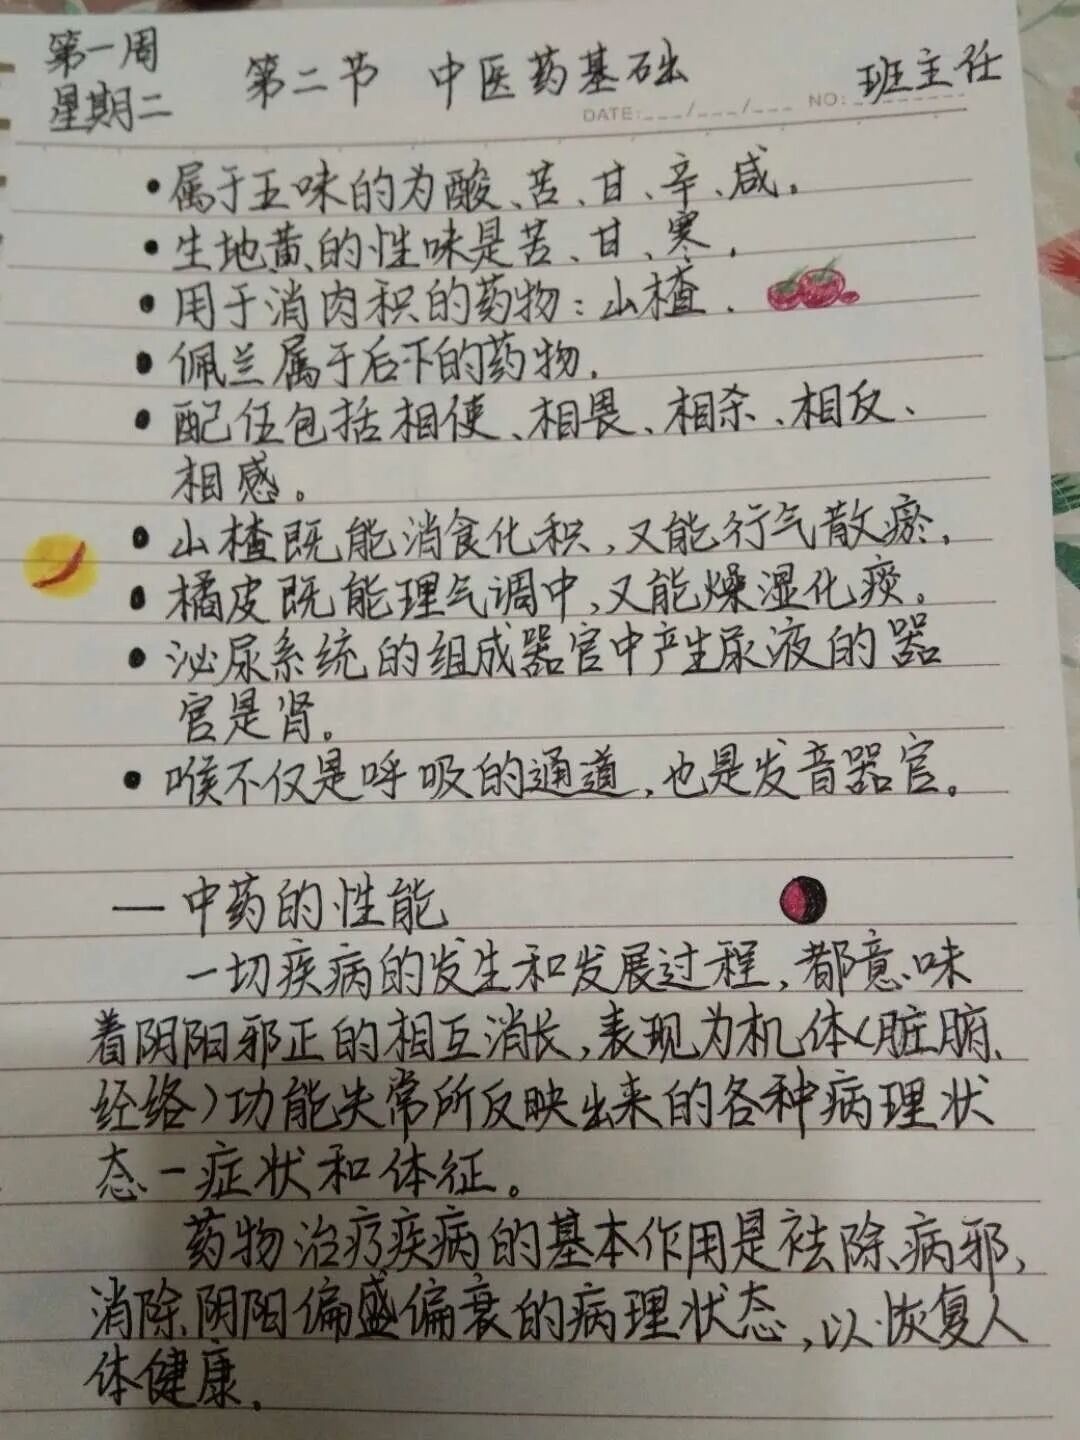 第一周
星期二
第二节 中医药基础
班主任
DATE:___/___/___ NO:
•属于五味的为酸、苦、甘、辛、咸.
•生地黄的性味是苦、甘、寒.
•用于消肉积的药物:山楂.
•佩兰属于后下的药物.
•配伍包括相使、相畏、相杀、相反、
相感。
•山楂既能消食化积,又能行气散瘀.
•橘皮既能理气调中,又能燥湿化痰。
•泌尿系统的组成器官中产生尿液的器
官是肾。
•喉不仅是呼吸的通道,也是发音器官。
—中药的性能
一切疾病的发生和发展过程,都意味
着阴阳邪正的相互消长,表现为机体(脏腑、
经络)功能失常所反映出来的各种病理状
态-症状和体征。
药物治疗疾病的基本作用是祛除病邪,
消除阴阳偏盛偏衰的病理状态,以恢复人
体健康.